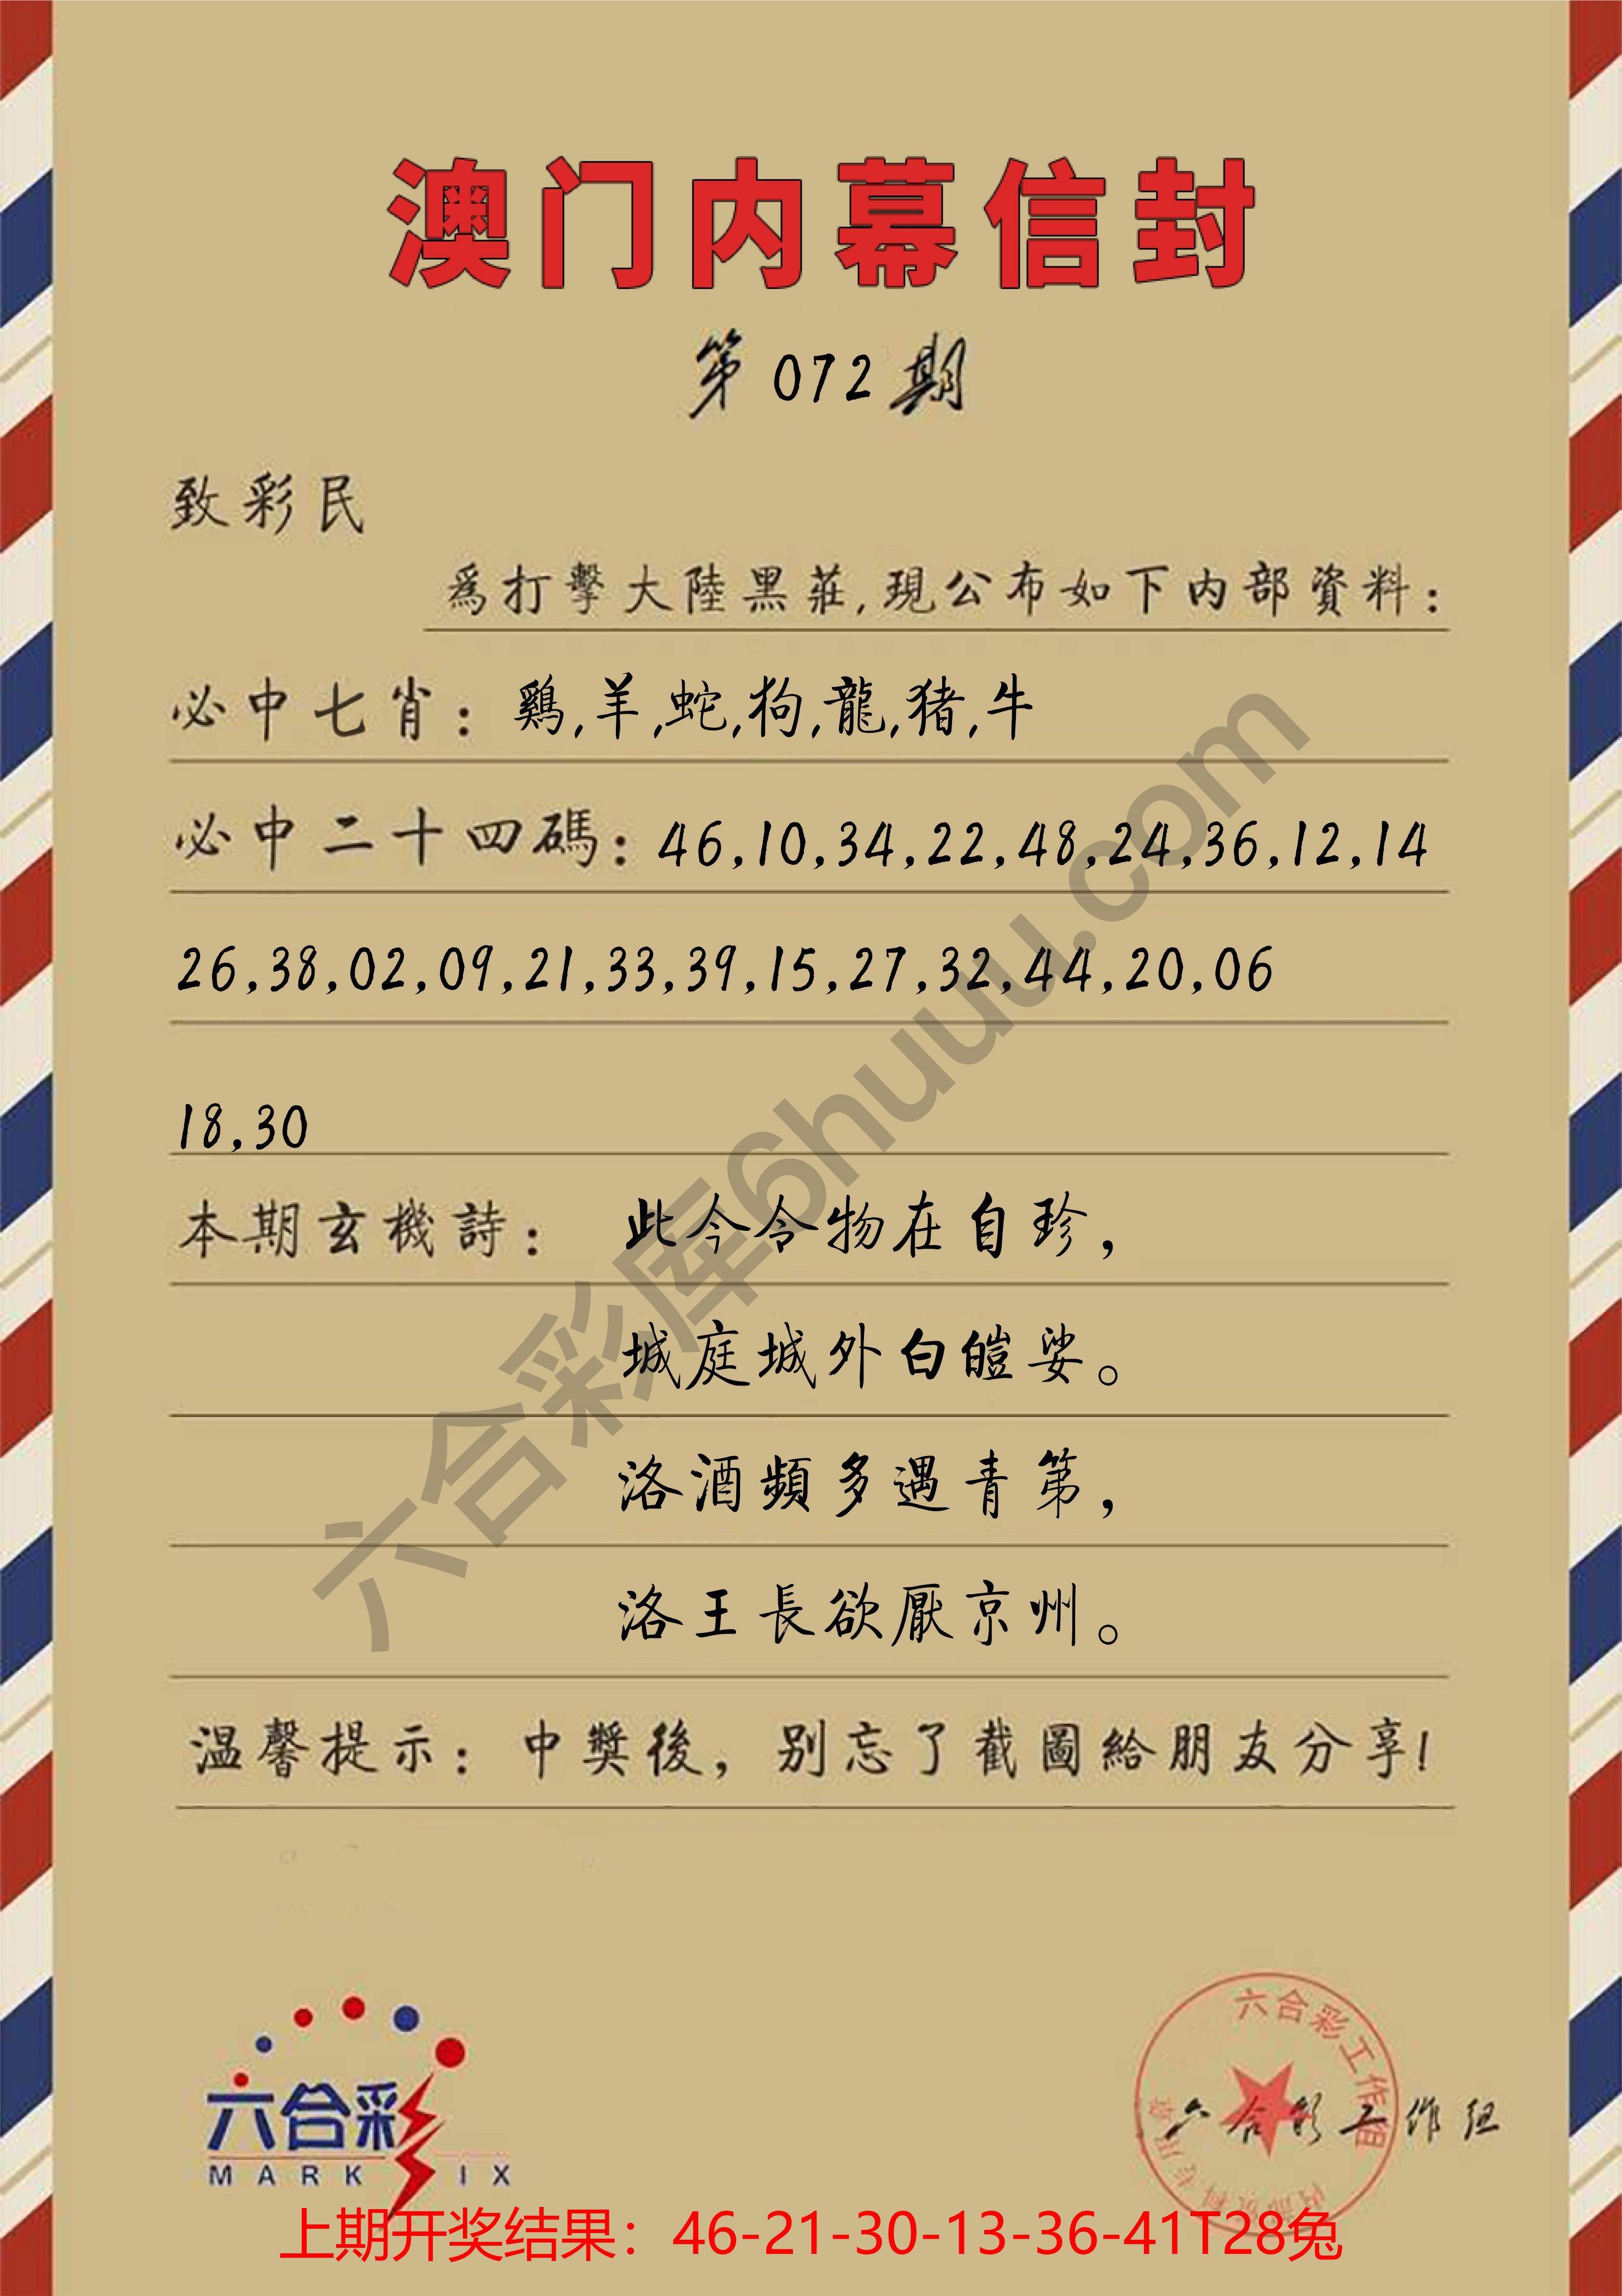 澳门内幕信封
第072期
致彩民
爲打擊大陸黑莊,現公布如下内部資料:
必中七肖: 鷄,羊,蛇,狗,龍,猪,牛
必中二十四碼: 46,10,34,22,48,24,36,12,14
26,38,02,09,21,33,39,15,27,32,44,20,06
18,30
本期玄機詩: 此今令物在自珍,
城庭城外白皚娑。
洛酒頻多遇青第,
洛王長欲厭京州。
温馨提示: 中獎後, 别忘了截圖給朋友分享!
六合彩库6huuu.com
六合彩
MARK SIX
六合彩工作组
六合彩工作组
上期开奖结果：46-21-30-13-36-41T28兔